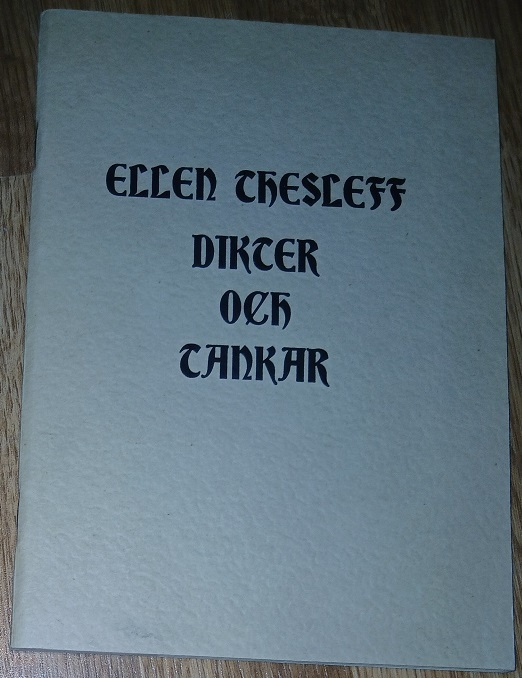 ELLEN THESLEFF
DIKTER
OCH
TANKAR